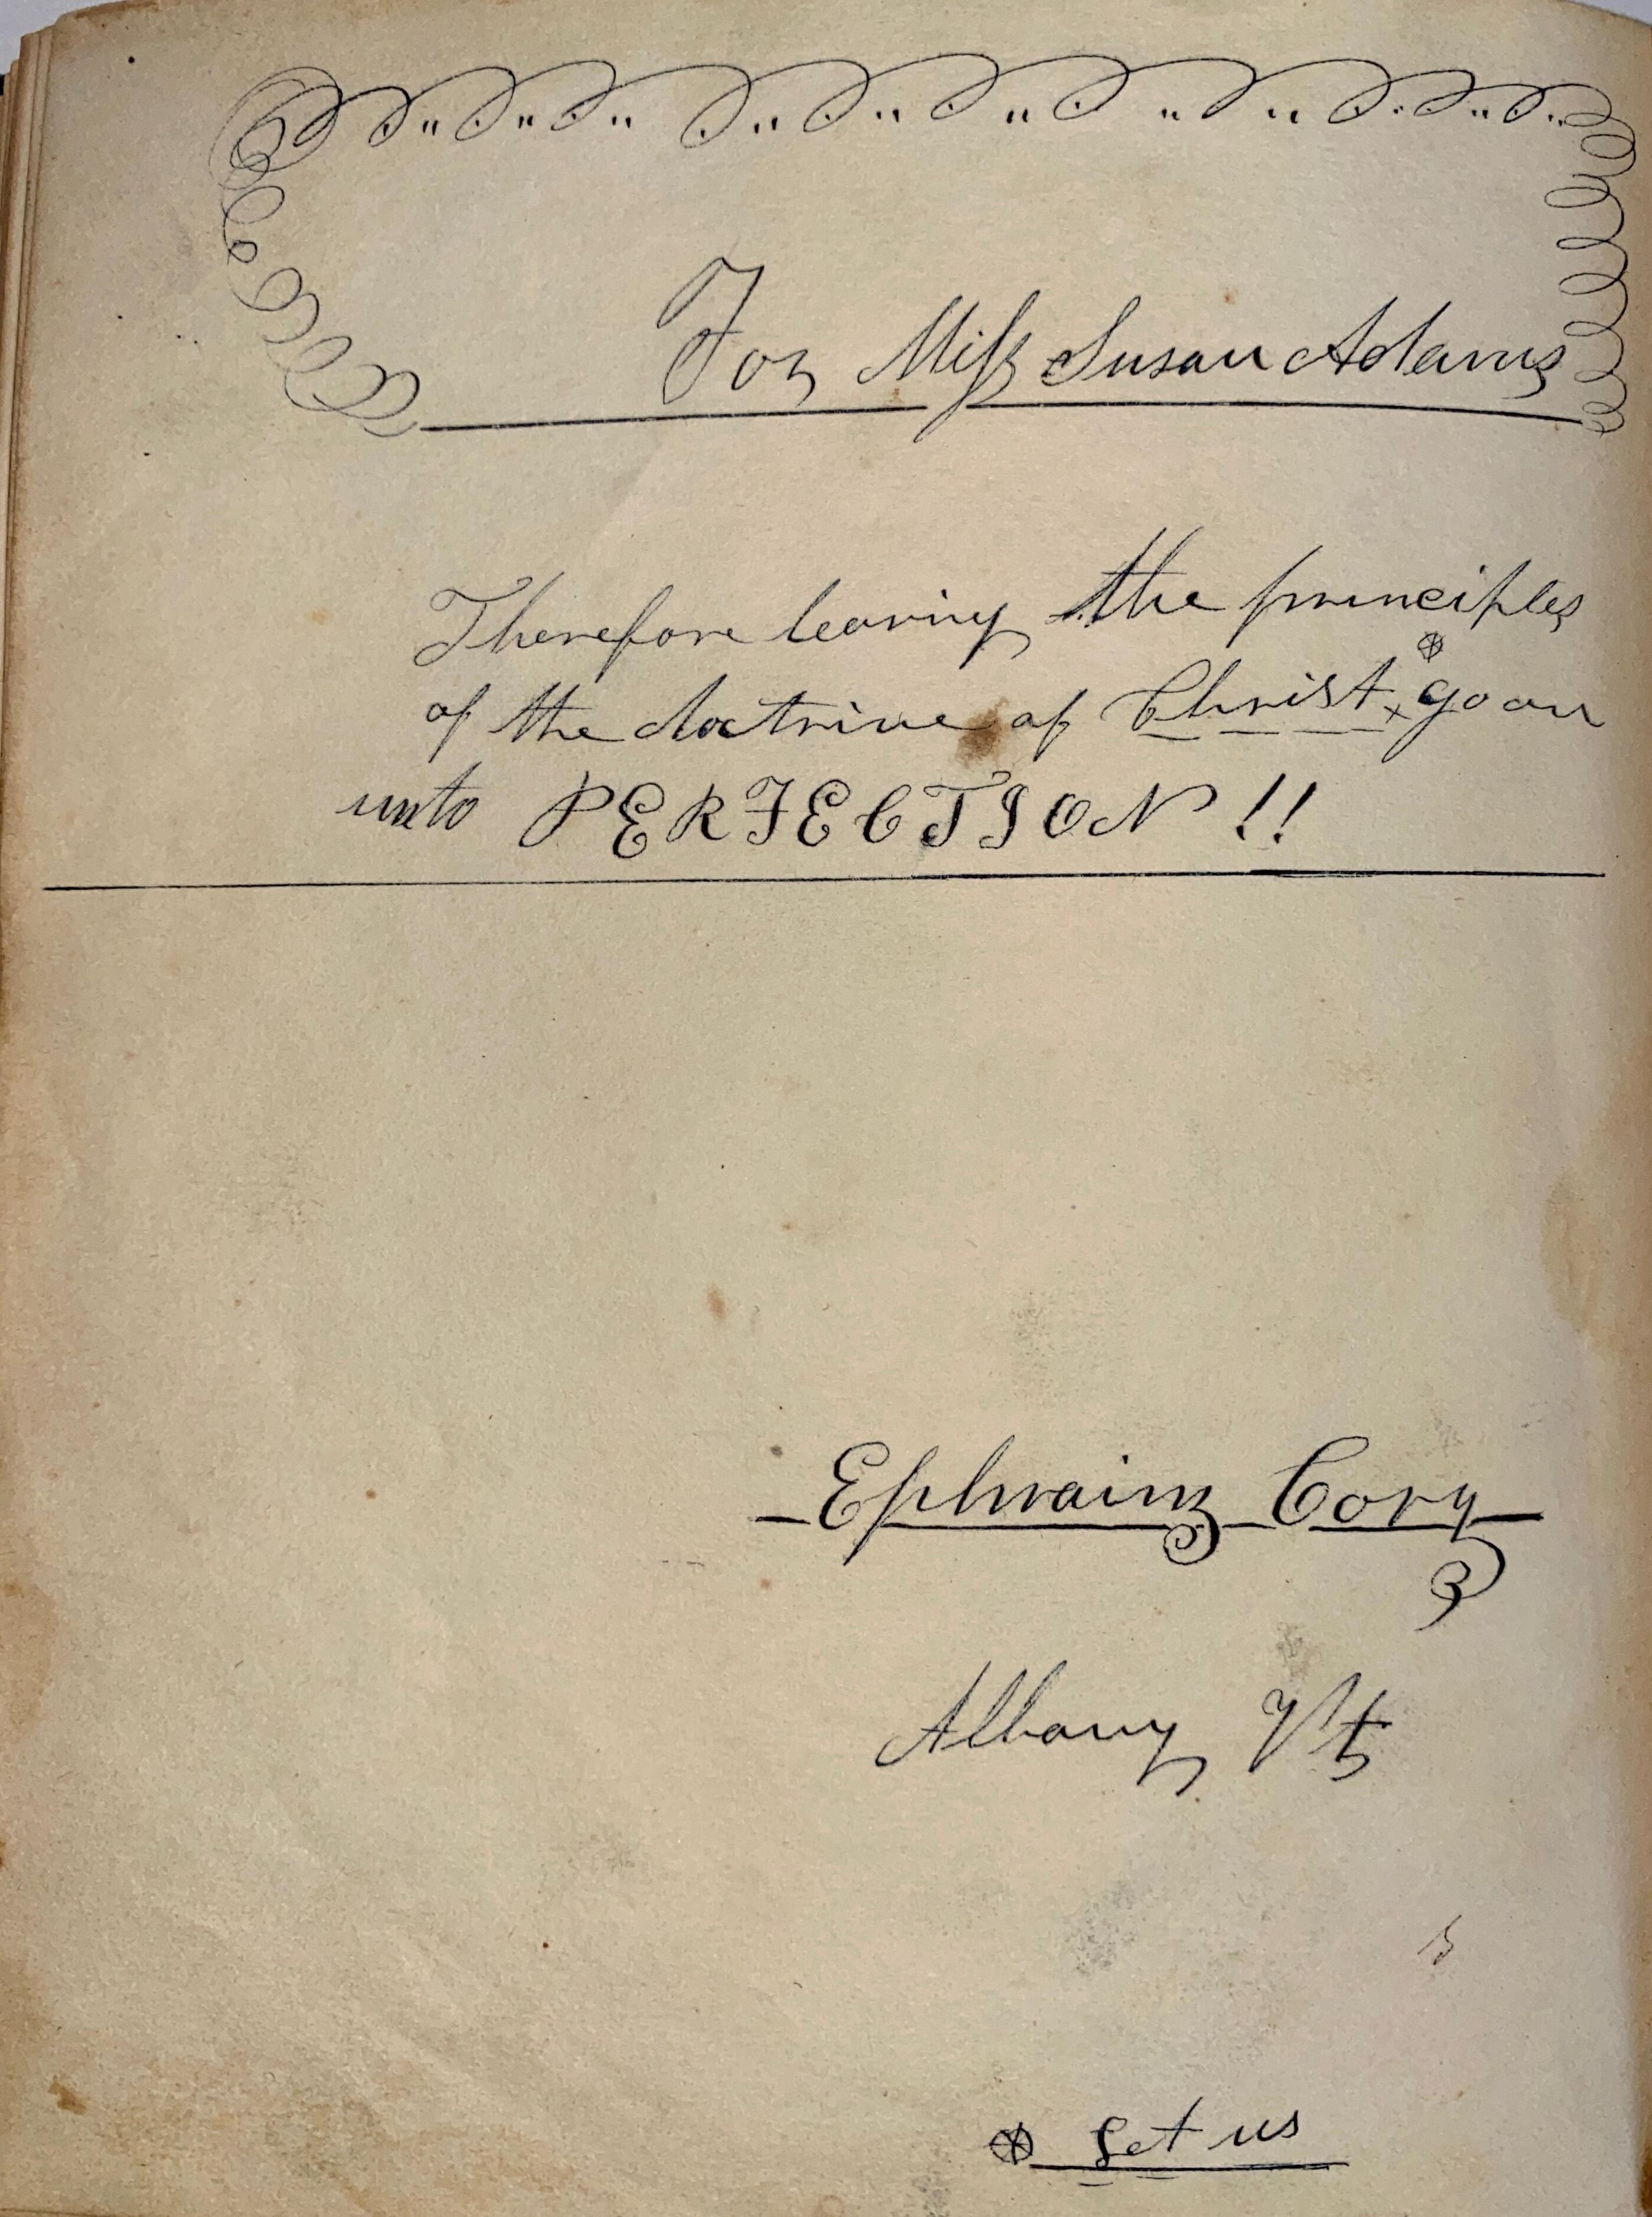 For Miſs Susan Adams
Therefore leaving the principles
⊗
of the doctrine of Christ × go on
unto PERFECTION !!
Ephraim Cory
Albany Vt
⊗ Let us